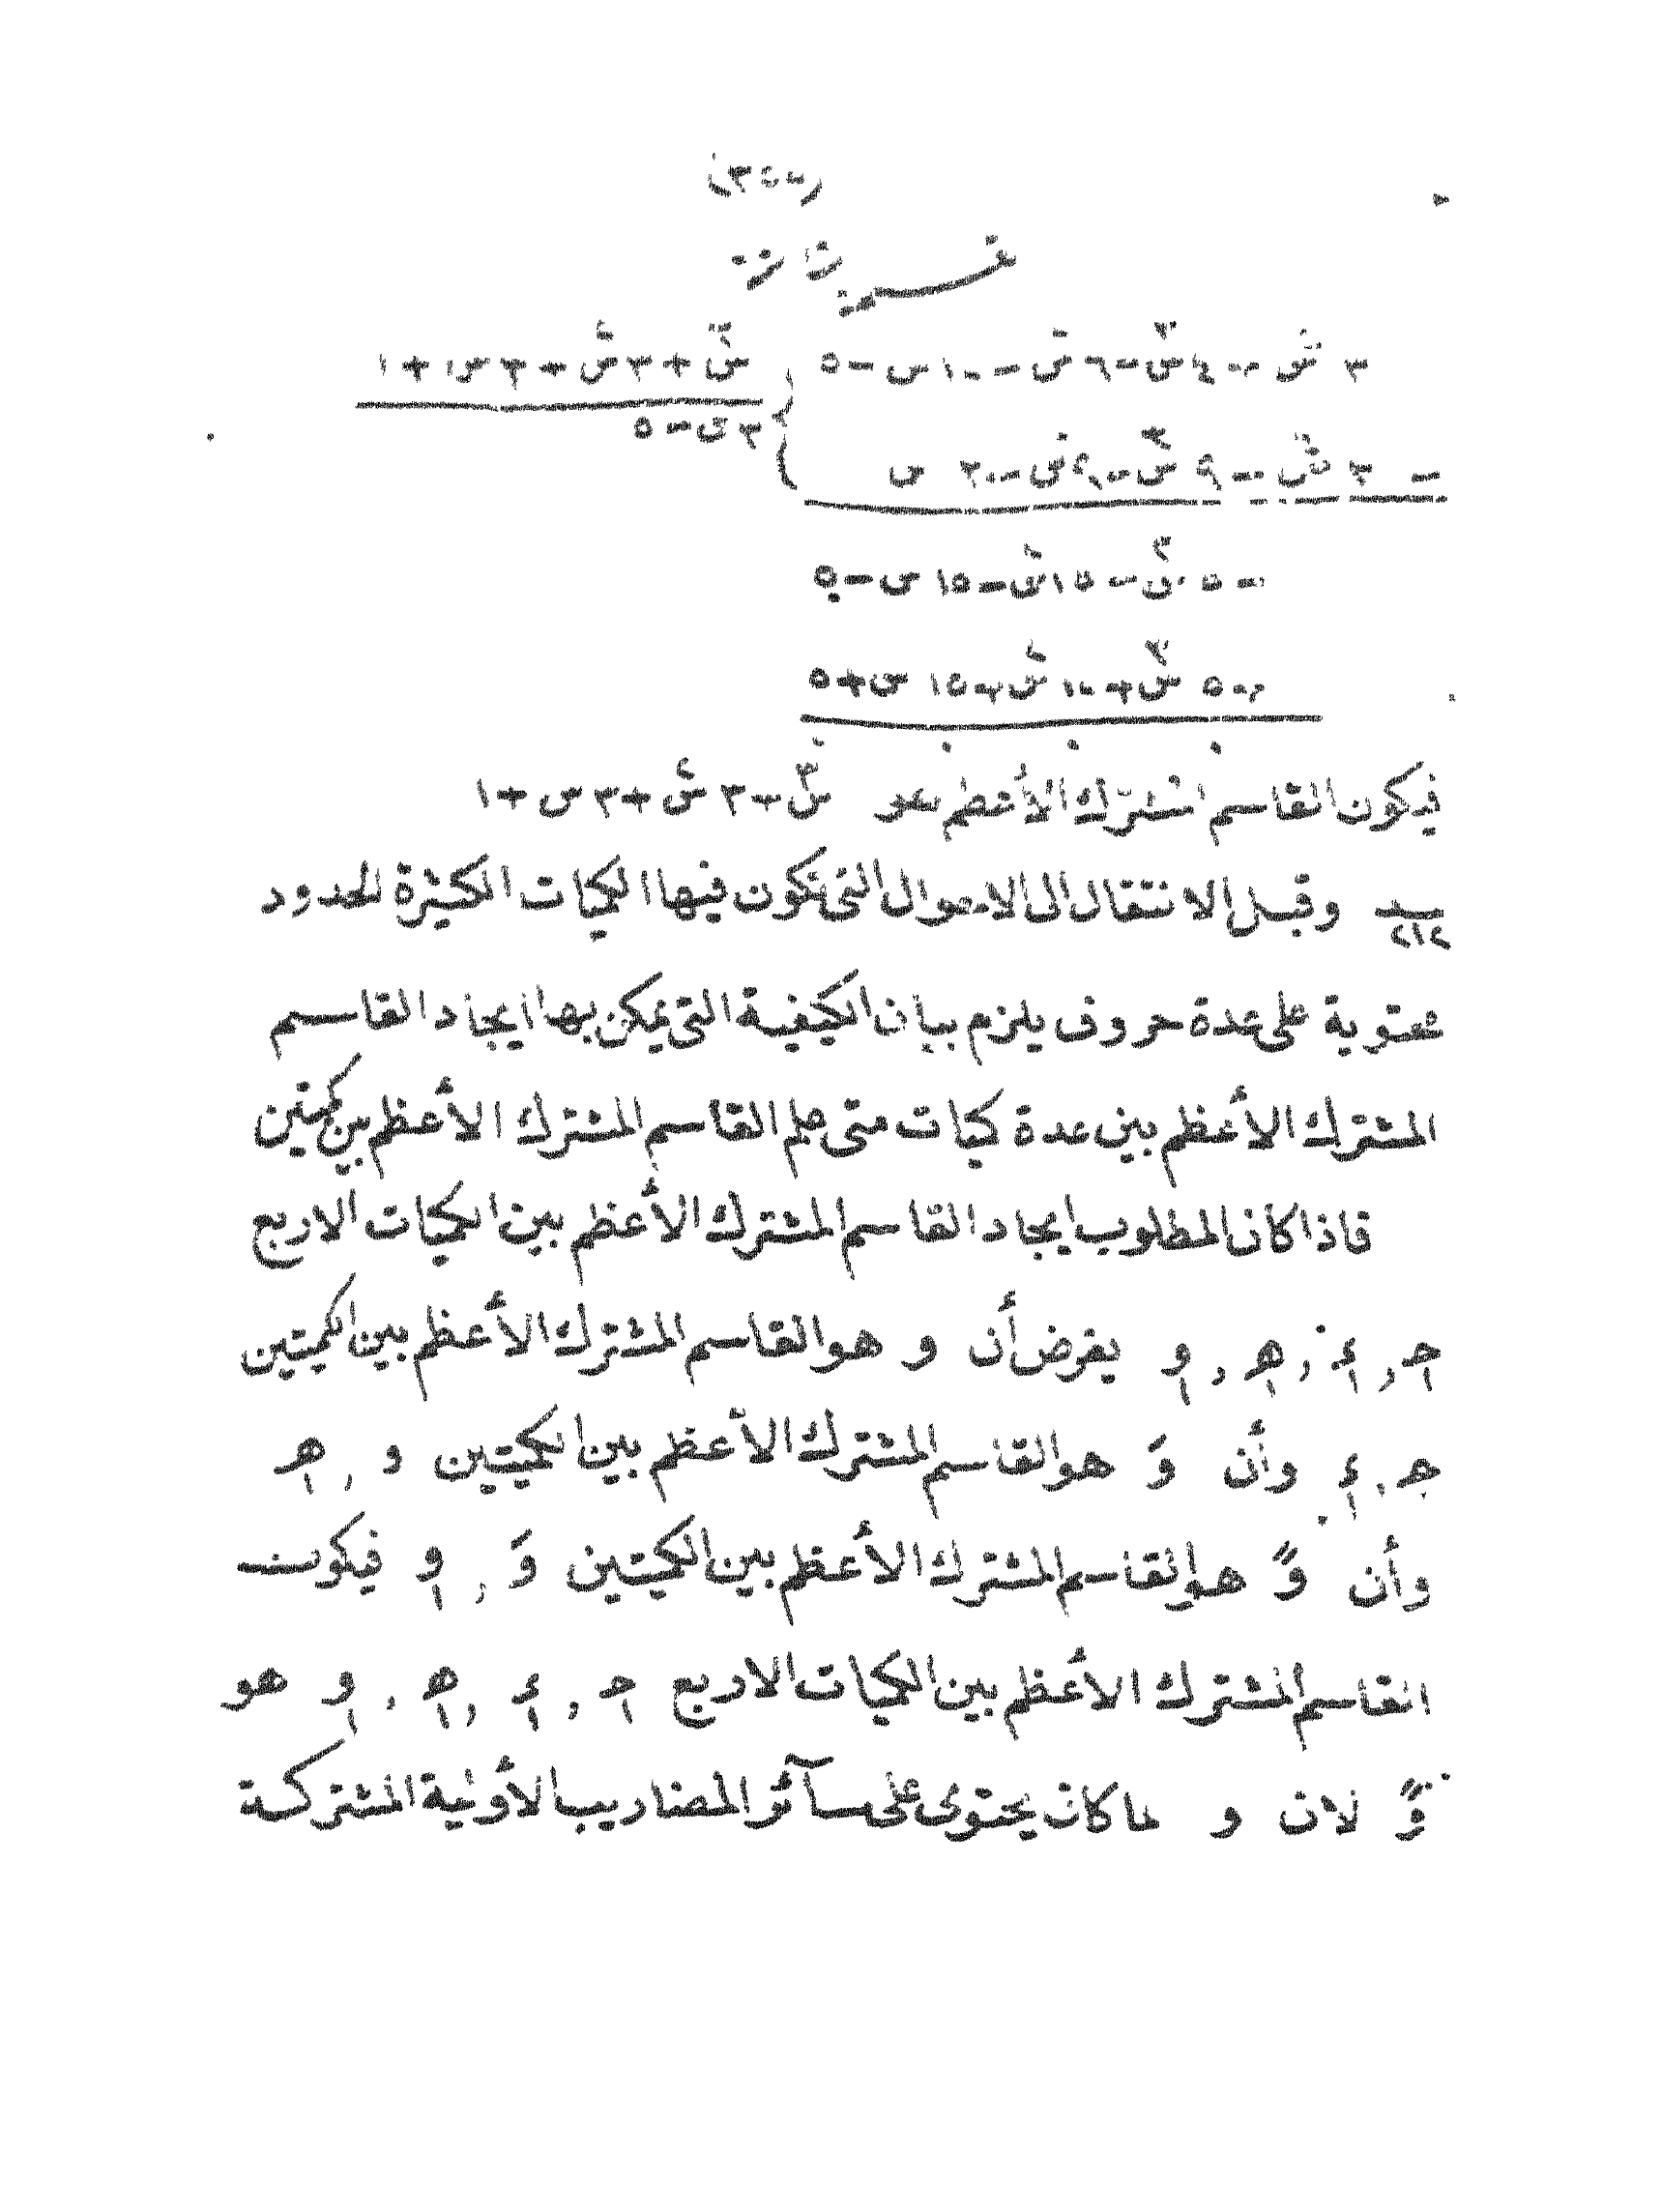 ٣ س٤ + ٤ س٣ - ٦ س٢ - ١٠ س - ٥ | س٣ + ٣ س٢ + ٣ س + ١
٣ س - ٥
- ٣ س٤ - ٩ س٣ - ٩ س٢ - ٣ س
- ٥ س٣ - ١٥ س٢ - ١٥ س - ٥
+ ٥ س٣ + ١٥ س٢ + ١٥ س + ٥
فيكون القاسم المشترك الأعظم هو س٣ + ٣ س٢ + ٣ س + ١
بند ٢١٢ وقبل الانتقال الى الاحوال التى تكون فيها الكميات الكثيرة الحدود
محتوية على عدة حروف يلزم بيان الكيفية التى يمكن بها ايجاد القاسم
المشترك الأعظم بين عدة كميات متى علم القاسم المشترك الأعظم بين كميتين
فاذا كان المطلوب ايجاد القاسم المشترك الأعظم بين الكميات الاربع
يفرض أن و هو القاسم المشترك الأعظم بين الكميتين
وأن وَ هو القاسم المشترك الأعظم بين الكميتين و
وأن وً هو القاسم المشترك الأعظم بين الكميتين وَ فيكون
القاسم المشترك الأعظم بين الكميات الاربع هو
وً لان و لما كان يحتوى على سآئر المضاريب الأولية المشتركة